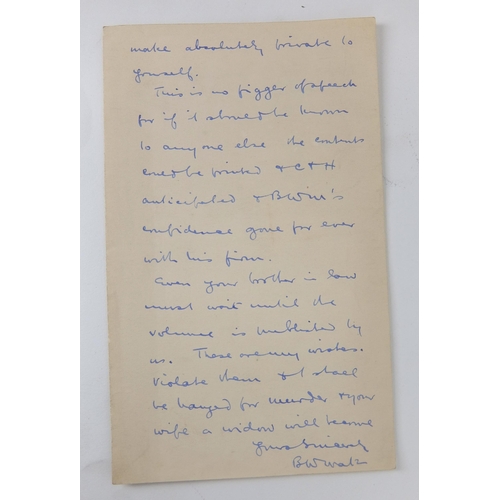 make absolutely private to
yourself.
This is no figger of speech
for if it should be known
to anyone else the contents
could be printed & C & H
anticipated & BW's
confidence gone for ever
with his firm.
Even your brother in law
must wait until the
volume is published by
us. These are my wishes.
Violate them & I shall
be hanged for murder & your
wife a widow will become
Yours Sincerely